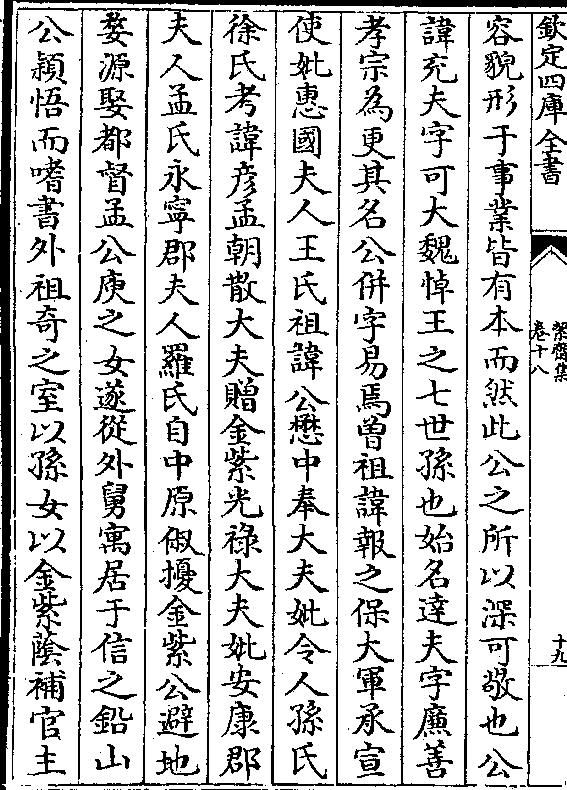 欽定四庫全書
絜齋集
卷十八
十九
容貌形于事業皆有本而然此公之所以深可敬也公
諱充夫字可大魏悼王之七世孫也始名達夫字廉善
孝宗為更其名公併字易焉曾祖諱報之保大軍承宣
使妣惠國夫人王氏祖諱公懋中奉大夫妣令人孫氏
徐氏考諱彦孟朝散大夫贈金紫光祿大夫妣安康郡
夫人孟氏永寧郡夫人羅氏自中原俶擾金紫公避地
婺源娶都督孟公庾之女遂從外舅寓居于信之鉛山
公穎悟而嗜書外祖奇之室以孫女以金紫蔭補官主